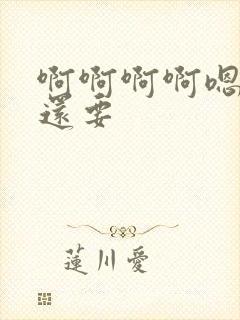 啊啊啊啊嗯
還要
蓮川愛